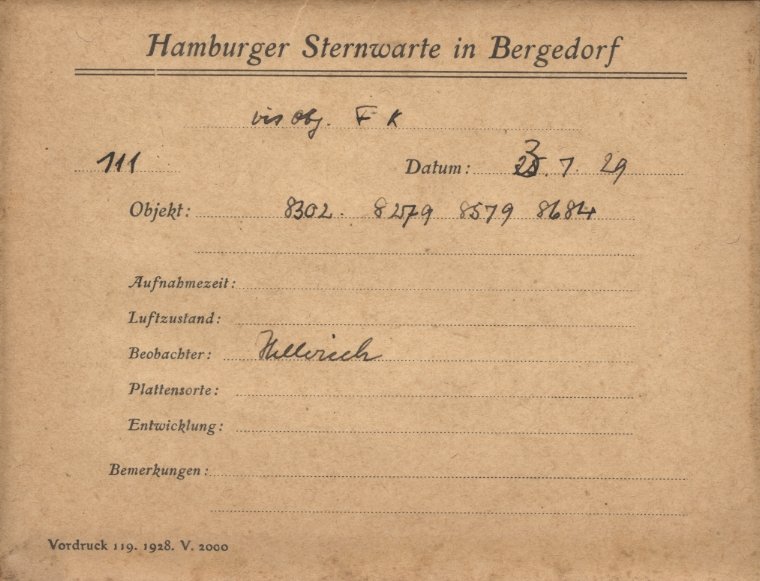 Hamburger Sternwarte in Bergedorf
vis Obj. F K
111 Datum: 7. 29
Objekt: 8302. 8279 8579 8684
Aufnahmezeit:
Luftzustand:
Beobachter:
Plattensorte:
Entwicklung:
Bemerkungen:
Vordruck 119. 1928. V. 2000